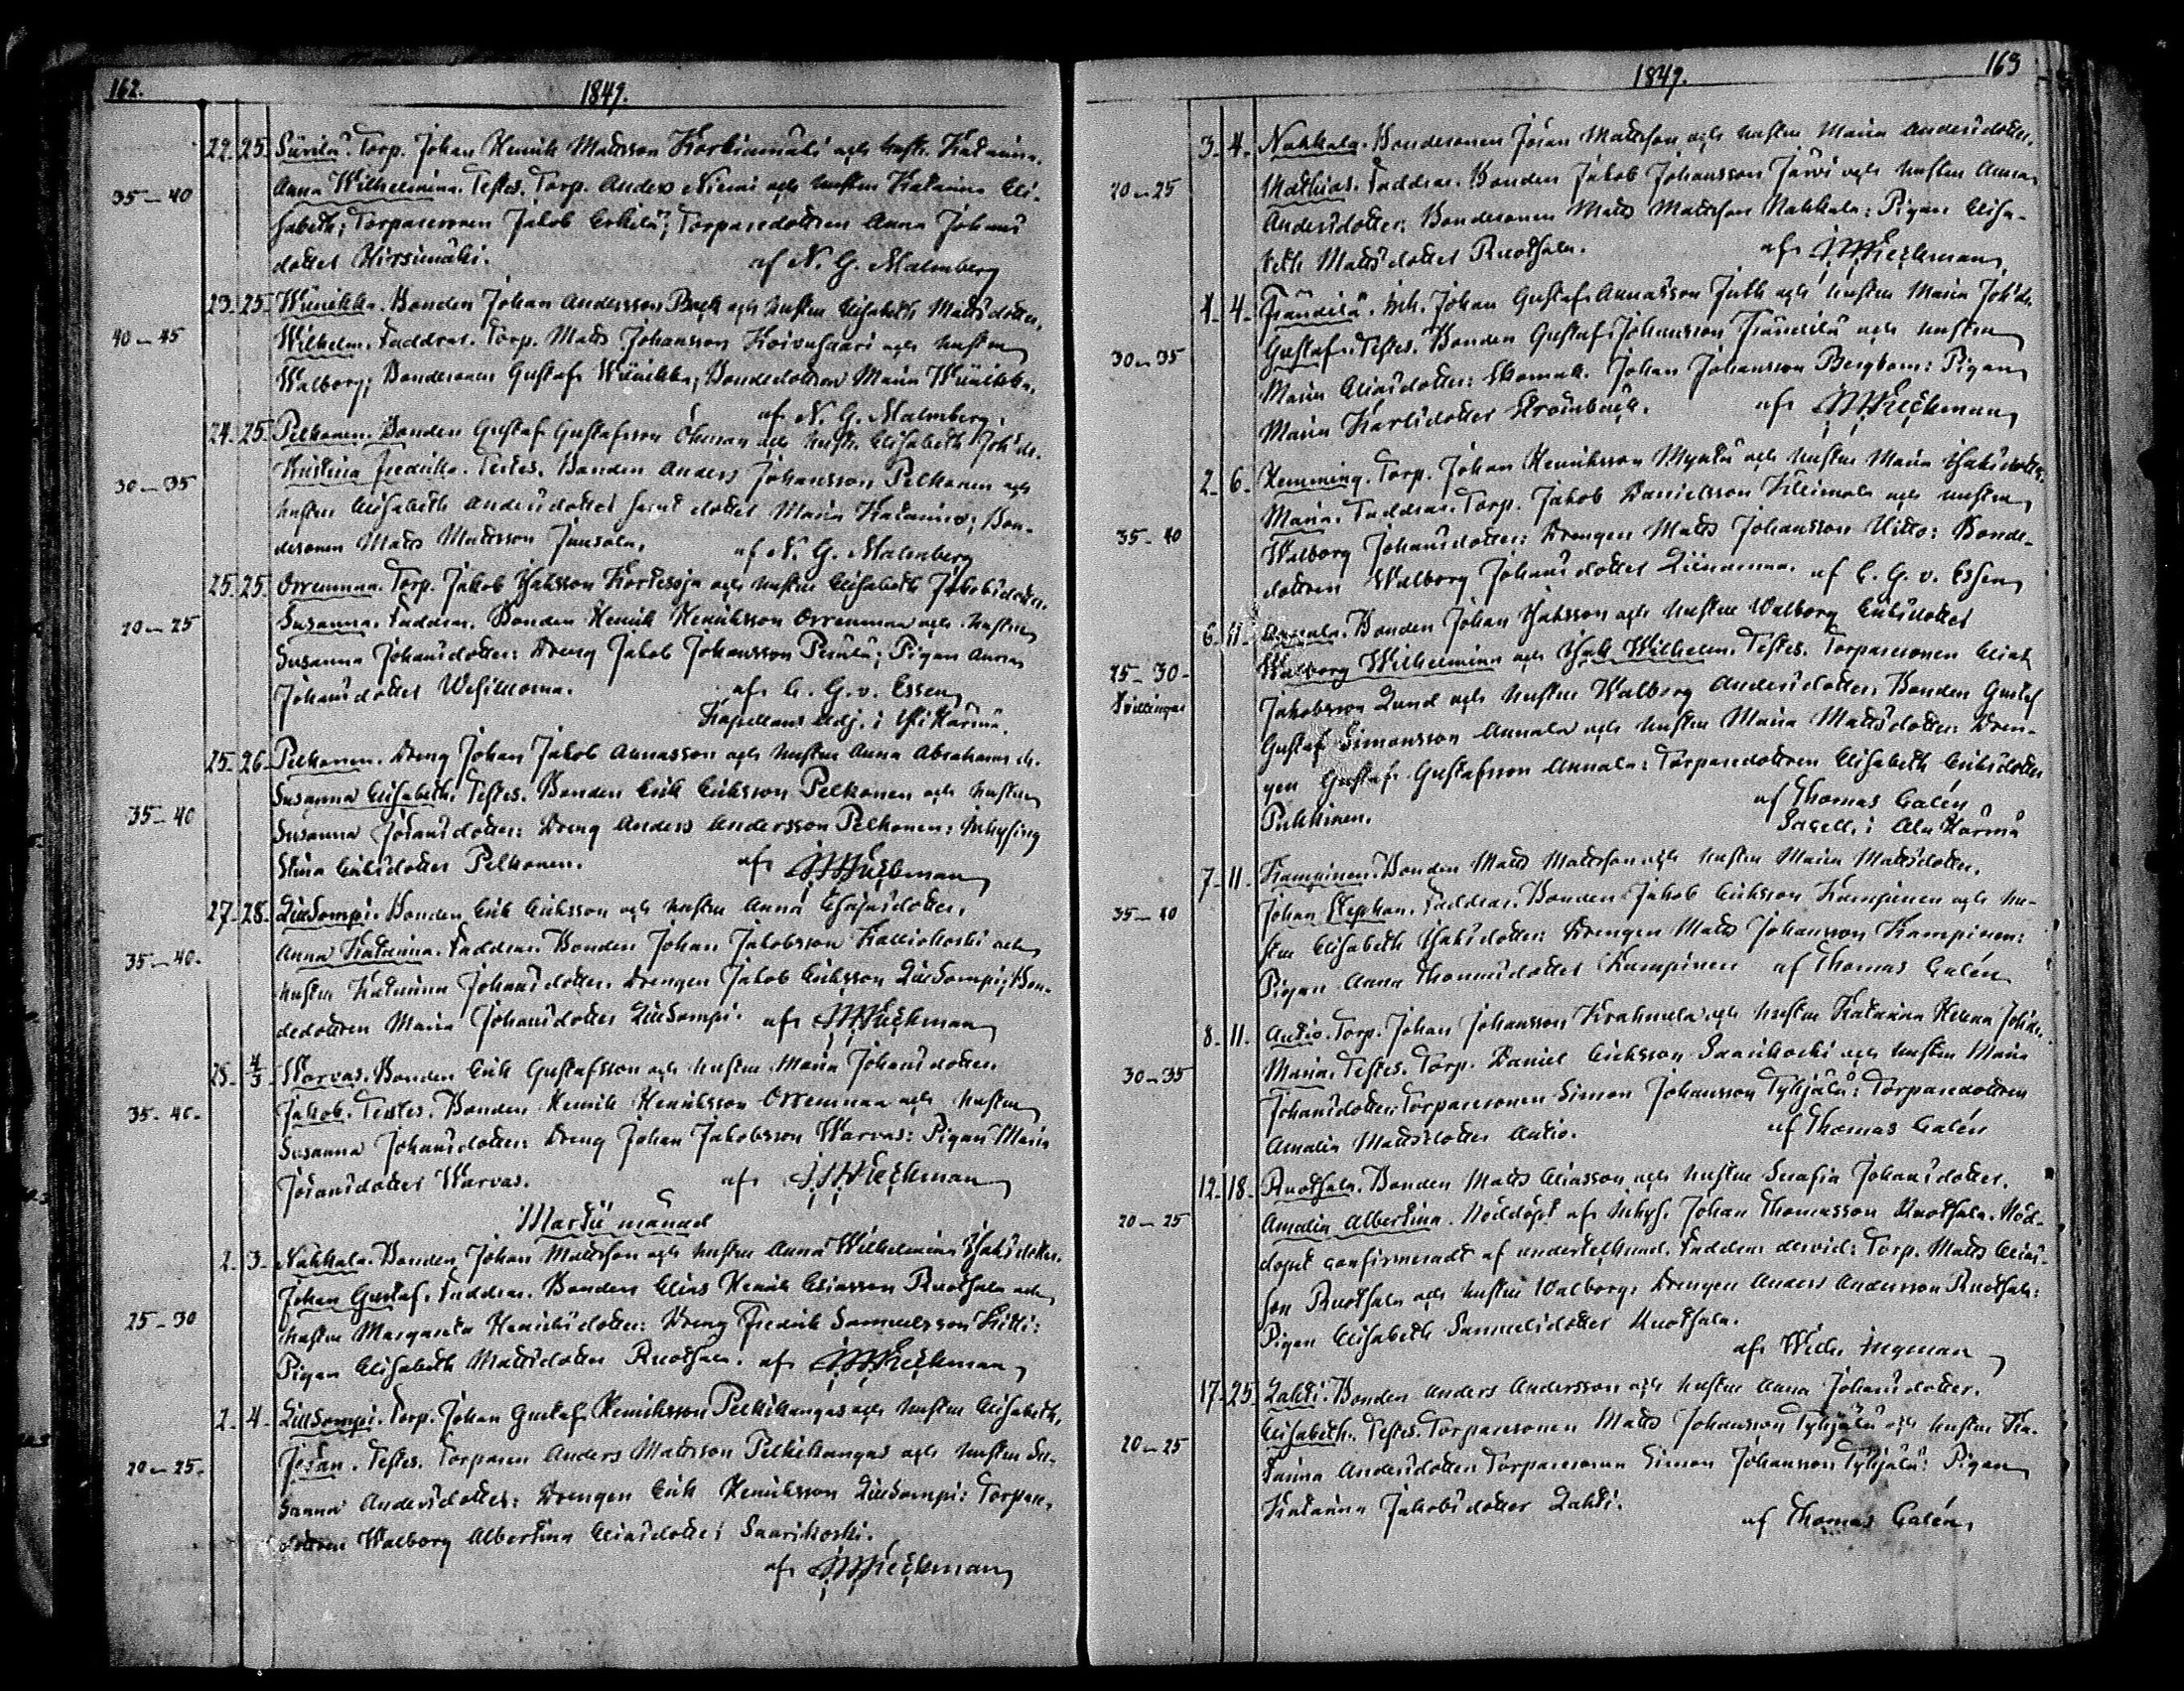 162.
1849.
22. 25. Siirilä. Torp. Johan Henrik Mattsson Korkiamäki och hustr. Katarina.
35–40 Anna Wilhelmina. Testes. Torp. Anders Niemi och hustru Katarina Eli-
sabeth; Torparesonen Jakob Erkilä; Torparedottren Anna Johans
dotter Hirsimäki. af N. G. Malmberg
23. 25. Wuinikka. Bonden Johan Andersson Back och hustru Elisabeth Mattsdotter,
40–45 Wilhelm. Faddrar. Torp. Matts Johansson Koivusaari och hustru
Walborg; Bondesonen Gustaf Wuinikka; Bondedottren Maria Wuinikka.
af N. G. Malmberg.
24. 25. Pelkonen. Bonden Gustaf Gustafsson Öhman och hustr. Elisabeth Joh:dr.
30–35 Kristina Fredrika. Testes. Bonden Anders Johansson Pelkonen och
hustru Elisabeth Andersdotter samt dotter Maria Katarina; Bon-
desonen Matts Mattsson Jussala, af N. G. Malmberg
25. 25. Orrenmaa. Torp. Jakob Isaksson Kortesoja och hustru Elisabeth Jakobsdotter.
20–25 Susanna. Faddrar. Bonden Henrik Henriksson Orrenmaa och hustru
Susanna Johansdotter: Dreng Jakob Johansson Perälä; Pigan Anna
Johansdotter Wesiluoma. af C. G. v. Essen
Kapellans Adj. i Yli Härmä.
25. 26. Pelkonen. Dreng Johan Jakob Annasson och hustru Anna Abrahams dr.
35–40 Susanna Elisabeth. Testes. Bonden Erik Eriksson Pelkonen och hustru
Susanna Johansdotter: Dreng Anders Andersson Pelkonen: Inhysing
Stina Eriksdotter Pelkonen. af
27. 28. Luitsompi. Bonden Erik Eriksson och hustru Anna Esaiasdotter.
35–40. Anna Katarina. Faddrar. Bonden Johan Jakobsson Kalliokoski och
hustru Katarina Johansdotter. Drengen Jakob Eriksson; Bon-
dedottren Maria Johansdotter af
25. 4/3 Warvas. Bonden Erik Gustafsson och hustru Maria Johansdotter.
35–40. Jakob. Testes. Bonden Henrik Henriksson Orrenmaa och hustru
Susanna Johansdotter: Dreng Johan Jakobsson Warvas: Pigan Maria
Johansdotter Warvas. af
Martii månad
2. 3. Nahkala. Bonden Johan Mattsson och hustru Anna Wilhelmina Isaksdotter.
25–30 Johan Gustaf. Faddrar. Bonden Elias Henrik Eliasson Ruotsala och
hustru Margareta Henriksdotter: Dreng Fredrik Samuelsson Kitti:
Pigan Elisabeth Mattsdotter Ruotsala. af
2. 4. Torp. Johan Gustaf Henriksson Pelkikangas och hustru Elisabeth,
20–25. Johan. Testes. Torparen Anders Mattsson Pelkikangas och hustru Su-
sanna Andersdotter: Drengen Erik Henriksson: Torpare-
dottren Walborg Albertina Eliasdotter Saarikoski.
af
1849.
163
3. 4. Nahkala. Bondesonen Johan Mattsson och hustru Maria Andersdotter.
20–25 Mathias. Faddrar. Bonden Jakob Johansson Järvi och hustru Anna
Andersdotter: Bondesonen Matts Mattsson Nahkala: Pigan Elisa-
beth Mattsdotter Ruotsala. af
1. 4. Frändilä. Inh. Johan Gustaf Annasson Juth och hustru Maria Joh:dr
30–35 Gustaf. Testes. Bonden Gustaf Johansson Frändilä och hustru
Maria Eliasdotter: Skomak. Johan Johansson Bergbom: Pigan
Maria Karlsdotter Strömbäck. af
2. 6. Hemming. Torp. Johan Henriksson och hustru Maria Isaksdotter.
35–40 Maria. Faddrar. Torp. Jakob Danielsson och hustru
Walborg Johansdotter: Drengen Matts Johansson Hitto: Bonde-
dottren Walborg Johansdotter Liinamaa. af C. G. v. Essen
6. 11. Annala. Bonden Johan Isaksson och hustru Walborg Eriksdotter
25–30 Walborg Wilhelmina och Isak Wilhelm. Testes. Torparesonen Elias
Tvillingar Jakobsson Lund och hustru Walborg Andersdotter, Bonden Gustaf
Gustaf Simonsson Annala och hustru Maria Mattsdotter: Dren-
gen Gustaf Gustafsson Annala: Torparedottren Elisabeth Eriksdotter
Pukkinen. af Thomas Calén
Sacell. i Ala Härmä
7. 11. Kampinen. Bonden Matts Mattsson och hustru Maria Mattsdotter.
35–40 Johan Stephan. Faddrar. Bonden Jakob Eriksson Kampinen och hu-
stru Elisabeth Isaksdotter: Drengen Matts Johansson Kampinen:
Pigan Anna Thomasdotter Kampinen af Thomas Calén
8. 11. Autio. Torp. Johan Johansson Krahnula och hustru Katarina Helena Joh:dr.
30–35 Maria. Testes. Torp. Daniel Eriksson Saarikoski och hustru Maria
Johansdotter: Torparesonen Simon Johansson Tyhjälä: Torparedottren
Amalia Mattsdotter Autio. af Thomas Calén
12. 18. Ruotsala. Bonden Matts Eliasson och hustru Serafia Johansdotter.
20–25 Amalia Albertina. Nöddöpt af Inhys. Johan Thomasson Ruotsala. Nöd-
dopet confirmeradt af undertecknad. Faddrar dervid: Torp. Matts Elias-
son Ruotsala och hustru Walborg: Drengen Anders Andersson Ruotsala:
Pigan Elisabeth Samuelsdotter Ruotsala.
af Wilh. Ingman
17. 25. Lahti. Bonden Anders Andersson och hustru Anna Johansdotter.
20–25 Elisabeth. Testes. Torparesonen Matts Johansson Tyhjälä och hustru Ka-
tarina Andersdotter: Torparesonen Simon Johansson Tyhjälä: Pigan
Katarina Jakobsdotter Lahti.
af Thomas Calén,